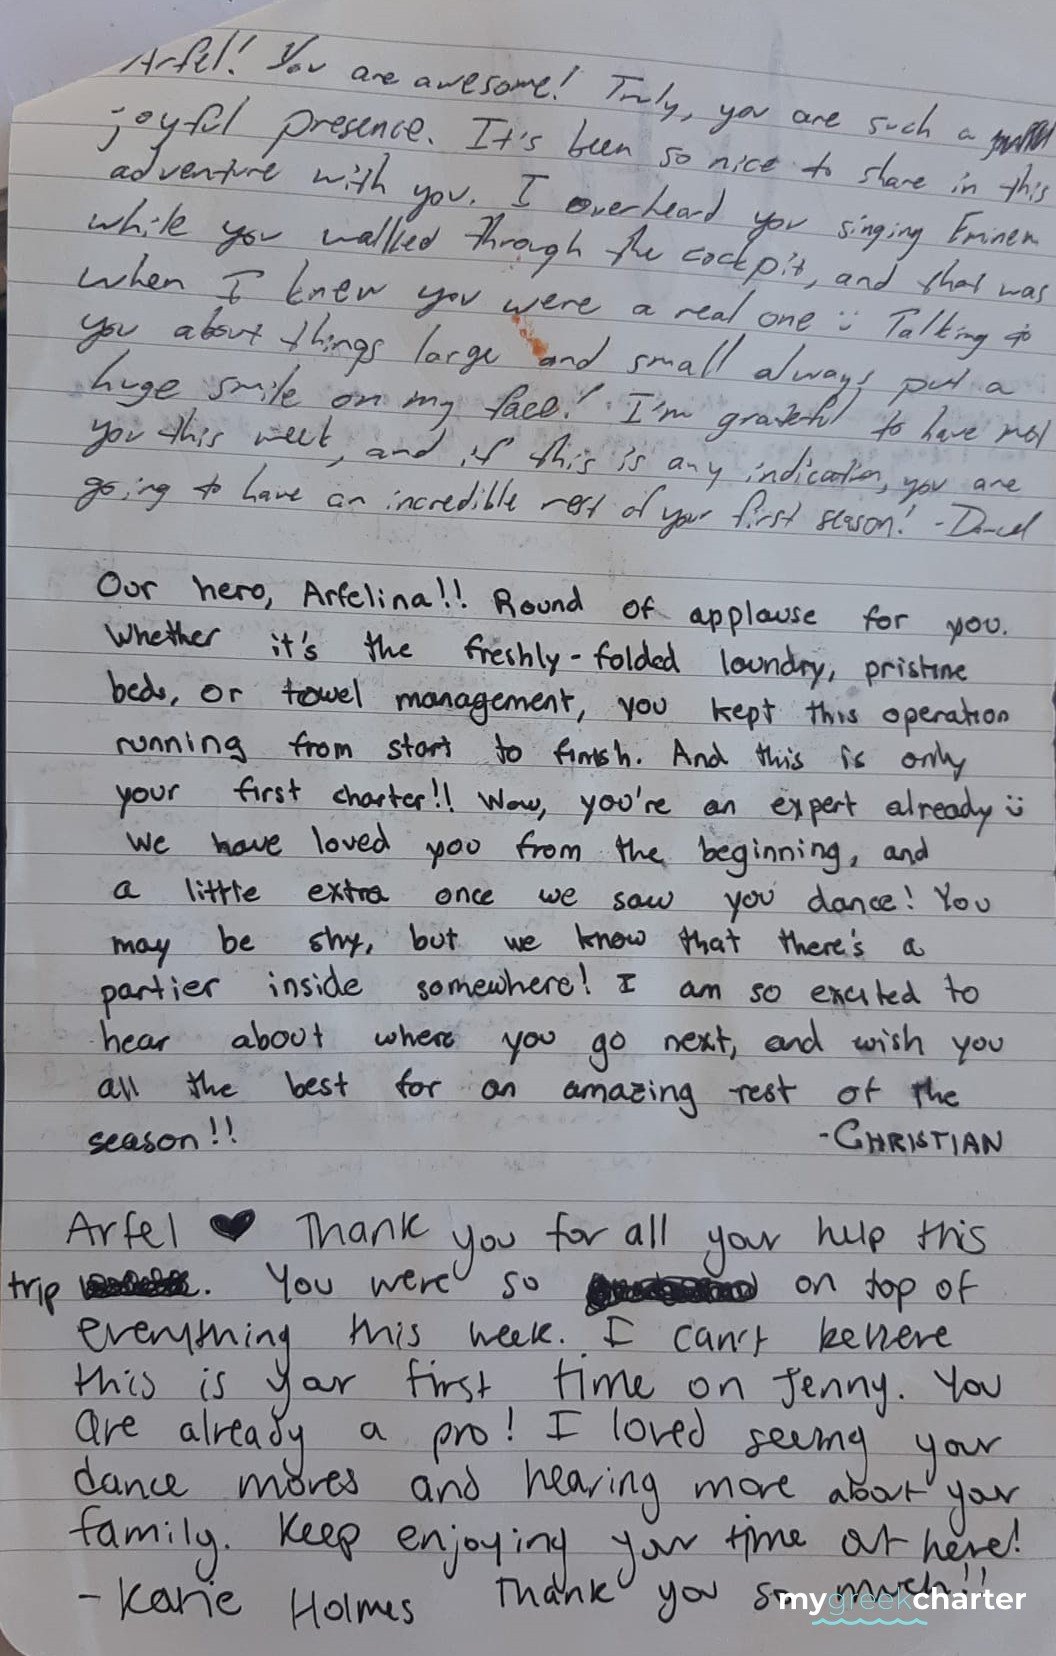 Arfel! You are awesome! Truly, you are such a
joyful presence. It's been so nice to share in this
adventure with you. I overheard you singing Eminem
while you walked through the cockpit, and that was
when I knew you were a real one :) Talking to
you about things large and small always put a
huge smile on my face! I'm grateful to have met
you this week, and if this is any indication, you are
going to have an incredible rest of your first season! -
Our hero, Arfelina!! Round of applause for you.
Whether it's the freshly-folded laundry, pristine
beds, or towel management, you kept this operation
running from start to finish. And this is only
your first charter!! Wow, you're an expert already :)
We have loved you from the beginning, and
a little extra once we saw you dance! You
may be shy, but we know that there's a
partier inside somewhere! I am so excited to
hear about where you go next, and wish you
all the best for an amazing rest of the
season!! -CHRISTIAN
Arfel ♥ Thank you for all your help this
trip. You were so on top of
everything this week. I can't believe
this is your first time on Jenny. You
are already a pro! I loved seeing your
dance moves and hearing more about your
family. Keep enjoying your time out here!
- Karie Holmes Thank you so much!!
mygreekcharter